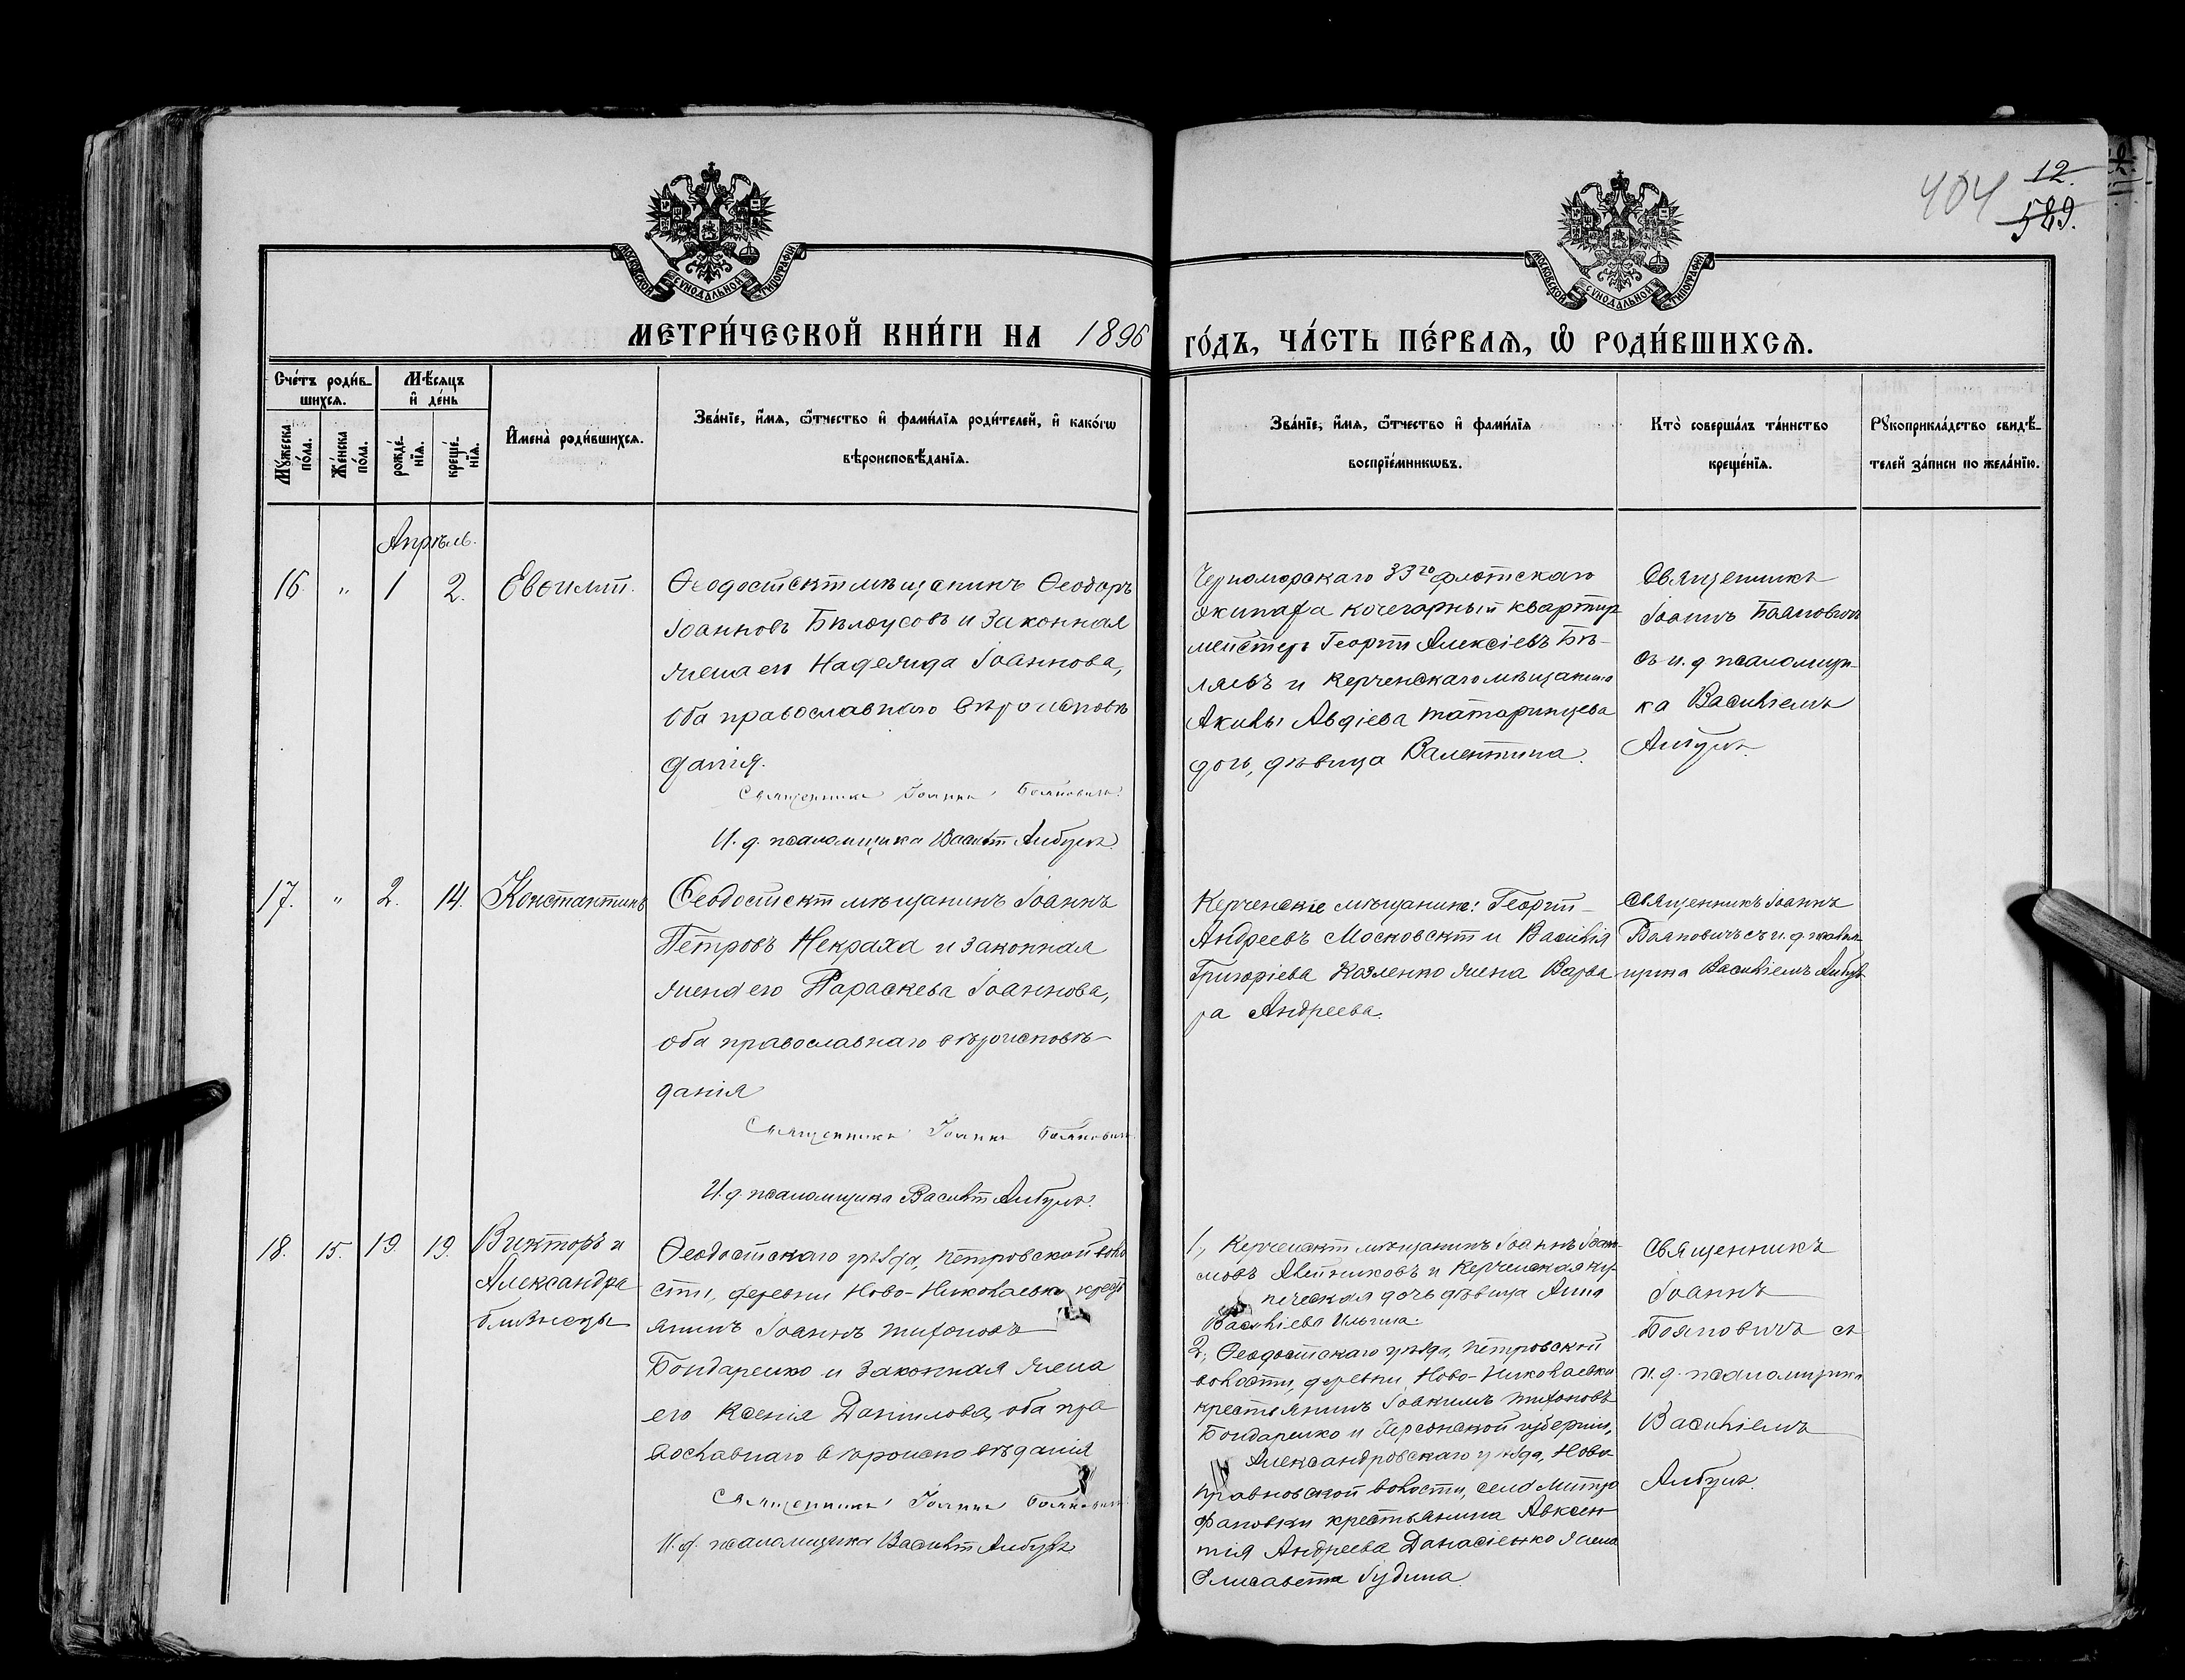 404
12.
589.
МОСКОВСКОЙ СѴНОДАЛЬНОЙ ТИПОГРАФІИ
МОСКОВСКОЙ СѴНОДАЛЬНОЙ ТИПОГРАФІИ
МЕТРИ́ЧЕСКОЙ КНИ́ГИ НА 1896
ГО́ДЪ, ЧА́СТЬ ПЕ́РВАѦ, Ѡ РОДИ́ВШИХСѦ.
Сче́тъ роди́в-
шихсѧ.
Мꙋ́жеска по́ла.
Же́нска по́ла.
Мѣ́сѧцъ и҆ де́нь
рожде́-
нїѧ.
креще́-
нїѧ.
И҆мена̀ роди́вшихсѧ.
Зва́нїе, и҆́мѧ, ѻ҆́тчество и҆ фами́лїѧ роди́телей, и҆ како́гѡ
вѣроисповѣ́данїѧ.
Зва́нїе, и҆́мѧ, ѻ҆́тчество и҆ фами́лїѧ
воспрїе́мникѡвъ.
Кто̀ соверша́лъ та́инство
креще́нїѧ.
Рꙋкоприкла́дство свидѣ́-
телей за́писи по жела́нїю.
Апрѣль.
16. " 1 2. Евѳимій.
Ѳеодосійскій мѣщанинъ Ѳеодоръ
Іоанновъ Бѣлоусовъ и законная
жена его Надежда Іоаннова,
оба православнаго вѣроисповѣ
данія.
Священникъ Іоаннъ Бояновичъ.
И. д. псаломщика Василій Анбулъ.
Черноморскаго 33го флотскаго
экипажа кочегарный квартир
мейстеръ Георгій Алексіевъ Бѣ-
ляевъ и Керченскаго мѣщанина
Акилы Авдіева Татаринцева
дочь, дѣвица Валентина.
Священникъ
Іоаннъ Бояновичъ
съ и. д псаломщи-
ка Василіемъ
17. " 2. 14. Константинъ
Ѳеодосійскій мѣщанинъ Іоаннъ
Петровъ Некраха и законная
жена его Параскева Іоаннова,
оба православнаго вѣроисповѣ-
данія
Священникъ Іоаннъ Бояновичъ.
И. д псаломщика Василій
Керченскіе мѣщанине: Георгій
Андреевъ Московскій и Василія
Григоріева Козленко жена Варва
ра Андреева.
Священникъ Іоаннъ
Бояновичъ съ и. д. псалом-
щика Василіемъ
18. 15. 19. 19. Викторъ и
Александра
близнецы
Ѳеодосійскаго уѣзда, Петровской воло
сти, деревни Ново-Николаевки крест
янинъ Іоаннъ Тихоновъ
Бондаренко и законная жена
его Ксенія Даниилова, оба пра
вославнаго вѣроисповѣданія
Священникъ Іоаннъ Бояновичъ
И. д. псаломщика Василій
1., Керченскій мѣщанинъ Іоаннъ
и Керченская ку-
печеская дочь дѣвица Анна
Василіева Ильина.
2., Ѳеодосійскаго уѣзда, Петровской
волости, деревни Ново-Николаевки
крестьянинъ Іоакимъ Тихоновъ
Бондаренко и Херсонской губерніи,
Александровскаго уѣзда, Ново
волости, села Митро
фановки крестьянина Авксен
тія Андреева жена
Елисавета Іудина.
Священникъ
Іоаннъ
Бояновичъ съ
и. д. псаломщика
Василіемъ